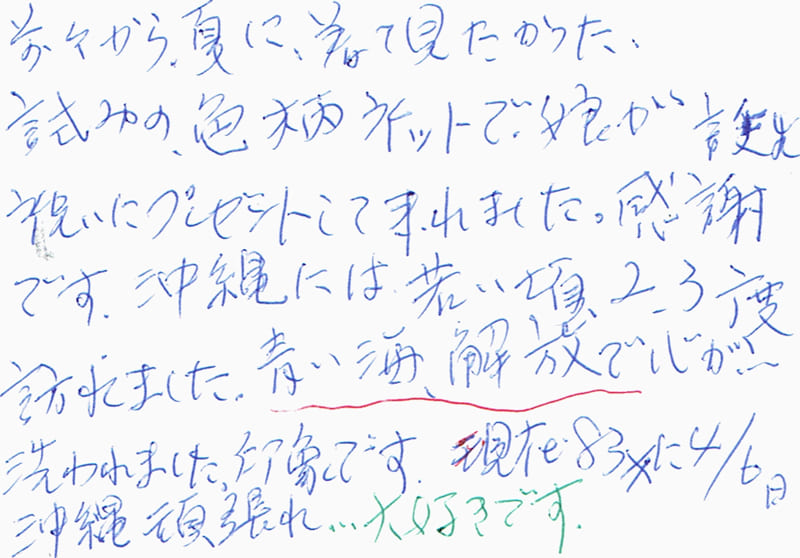 前々から、夏に、着て見たかった、
試みの、色柄 ネットで、娘が 誕生
祝いにプレゼントして来れました。感謝
です。沖縄には 若い頃、2、3度
訪れました。青い海、解放で心が…
洗われました、印象です。現在 83才に4/6日
沖縄 頑張れ…大好きです。